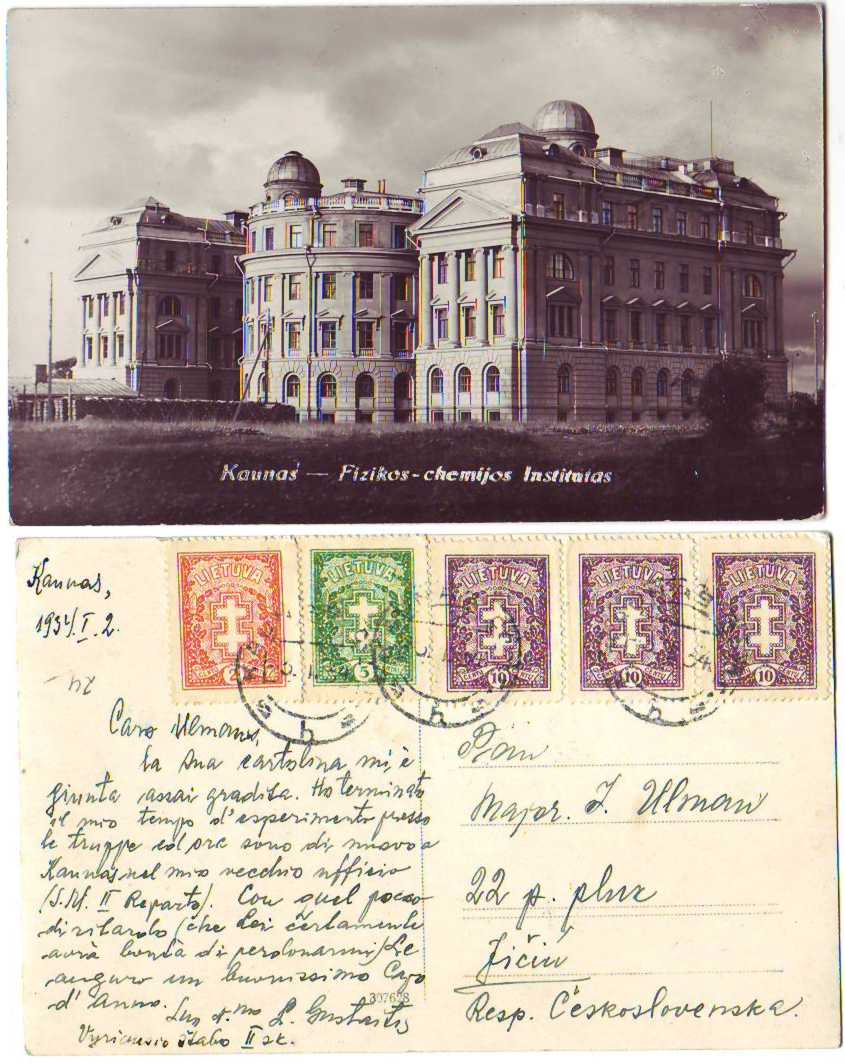 Kaunas — Fizikos-chemijos Institutas
Kaunas,
1934.I.2.
LIETUVA
LIETUVA
LIETUVA
LIETUVA
LIETUVA
2
5
10
10
10
Caro Ulmanas,
la Sua cartolina mi è
giunta assai gradita. Ho terminato
il mio tempo d'esperimento presso
le truppe ed ore sono di nuovo a
Kaunas nel mio vecchio ufficio
(S.M. II Reparto). Con quel pocco
di ritardo (che Lei certamente
avrà bontà di perdonarmi) Le
auguro un buonissimo Capo
d'anno.
L. Gustaitis
Vyriausio štabo II sk.
307698
Pan
Major. J. Ulman
22 p. pluk
Jičin
Resp. Československa.